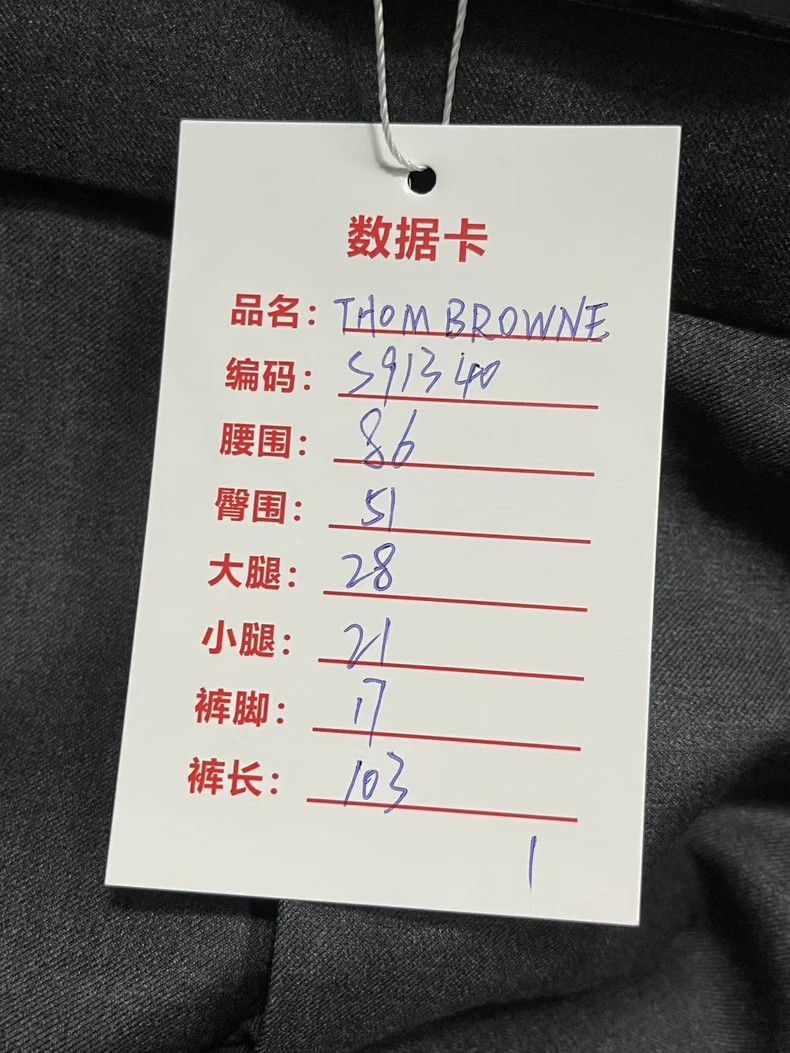 数据卡
品名：THOM BROWNE
编码：S91340
腰围：86
臀围：51
大腿：28
小腿：21
裤脚：17
裤长：103
1